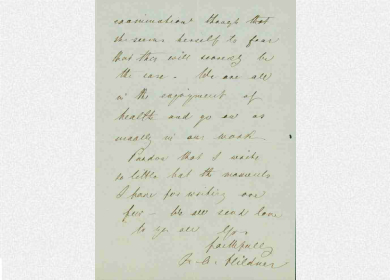 examination though that
she seems herself to fear
that this will scarcely be
the case. We are all
in the enjoyment of
health and go on as
usually in our work.
Pardon that I write
so little but the moments
I have for writing are
few. We all send love
to you all
faithfully